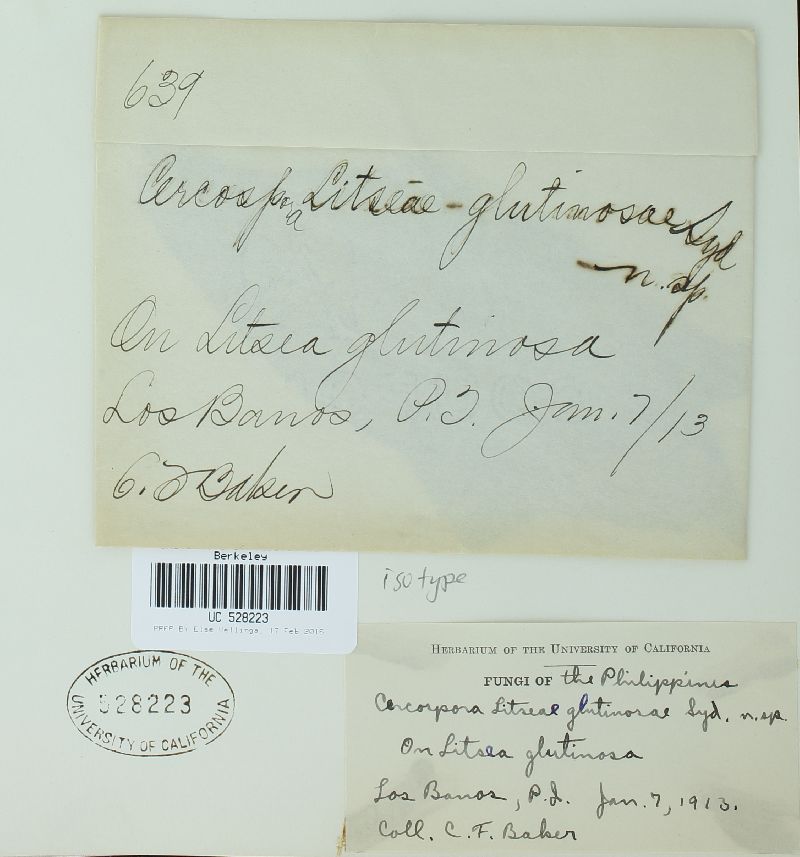 639
Cercospora Litseae-glutinosae Syd
n. sp.
On Litsea glutinosa
Los Banos, P.I. Jan. 7/13
C. F Baker
Berkeley
UC 528223
PREP BY Else Vellinga, 17 Feb 2016
isotype
HERBARIUM OF THE UNIVERSITY OF CALIFORNIA
FUNGI OF the Philippines
Cercospora Litseae glutinosae Syd. n.sp.
On Litsea glutinosa
Los Banos, P.I. Jan. 7, 1913.
Coll. C. F. Baker
HERBARIUM OF THE
528223
UNIVERSITY OF CALIFORNIA